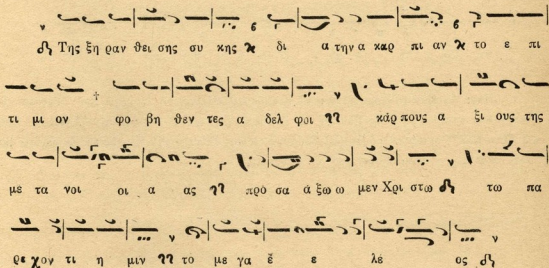 Της ξη ραν θει σης συ κης δι α την α καρ πι αν το ε πι
τι μι ον φο βη θεν τες α δελ φοι κάρ πους α ξι ους της
με τα νοι οι α ας προ σα ά ξω ω μεν Χρι στω τω πα
ρε χον τι η μιν το με γα ἔ ε λε ος